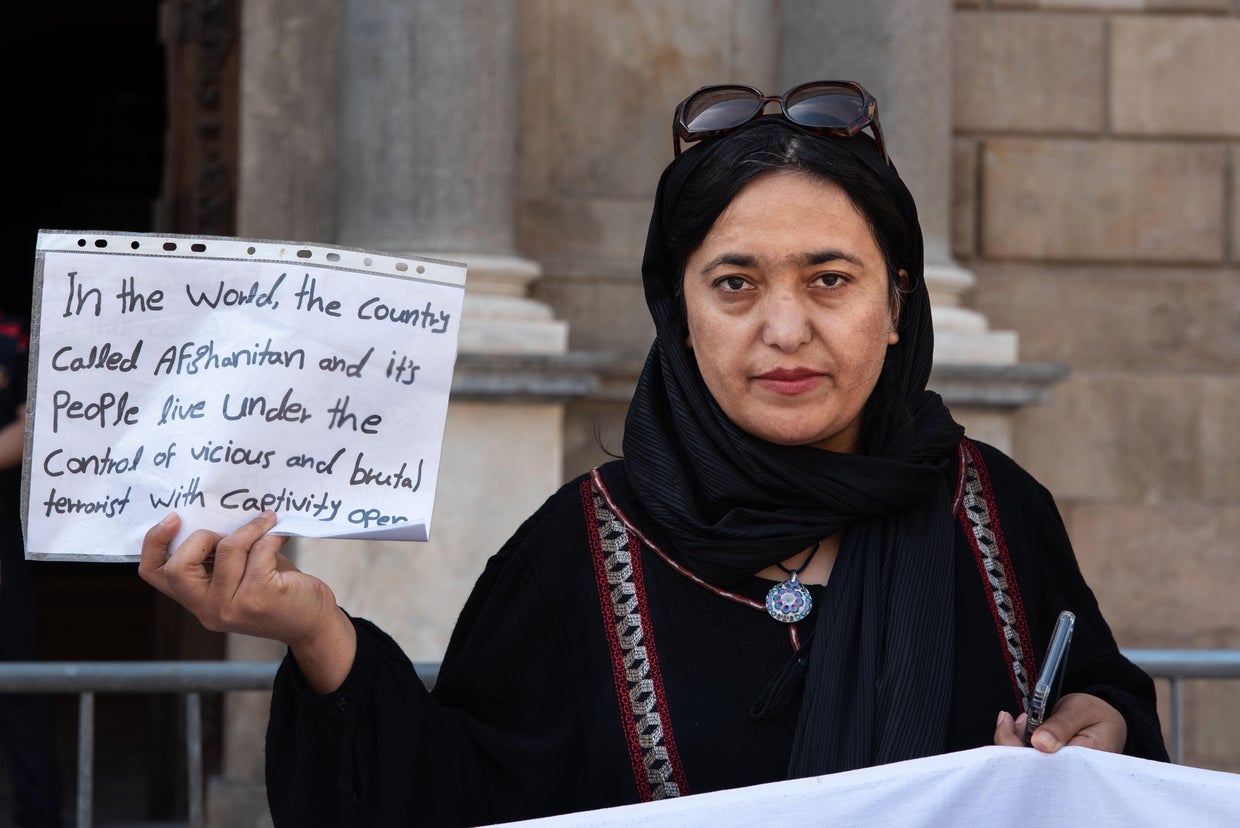 In the World, the Country
Called Afghanitan and it's
People live under the
Control of vicious and brutal
terrorist with Captivity open